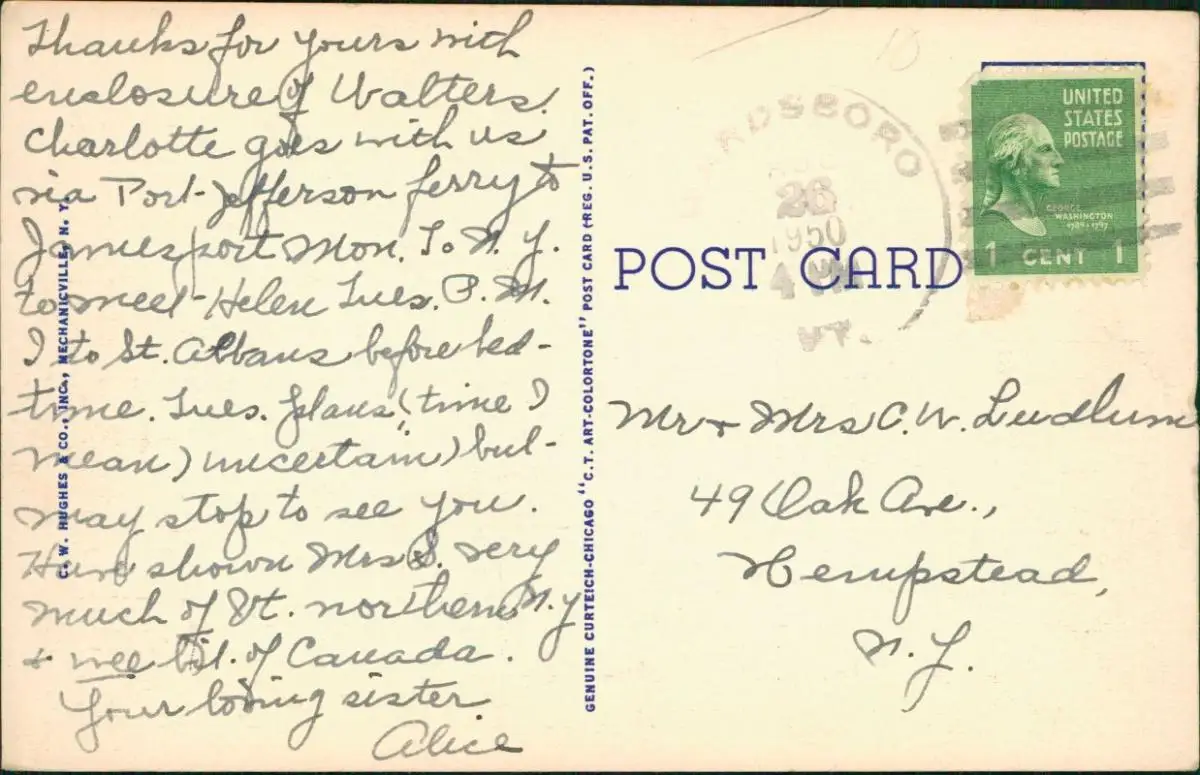 Thanks for yours with
enclosure of Walters.
Charlotte goes with us
via Port Jefferson ferry to
Jamesport Mon. To N.Y.
to meet Helen Tues. P.M.
I to St. Albans before bed-
time. Tues. plans (time I
mean) uncertain) but
may stop to see you.
Have shown Mrs S. very
much of Vt. northern N.Y
+ wee bit of Canada.
Your loving sister
Alice
C. W. HUGHES & CO., INC., MECHANICVILLE, N. Y.
GENUINE CURTEICH-CHICAGO "C.T. ART-COLORTONE" POST CARD (REG. U.S. PAT. OFF.)
POST CARD
RDSBORO
26
1950
4 PM
VT.
UNITED
STATES
POSTAGE
GEORGE
WASHINGTON
1789-1797
1 CENT 1
Mr + Mrs C. W. Ludlum
49 Oak Ave.,
Hempstead,
N.Y.